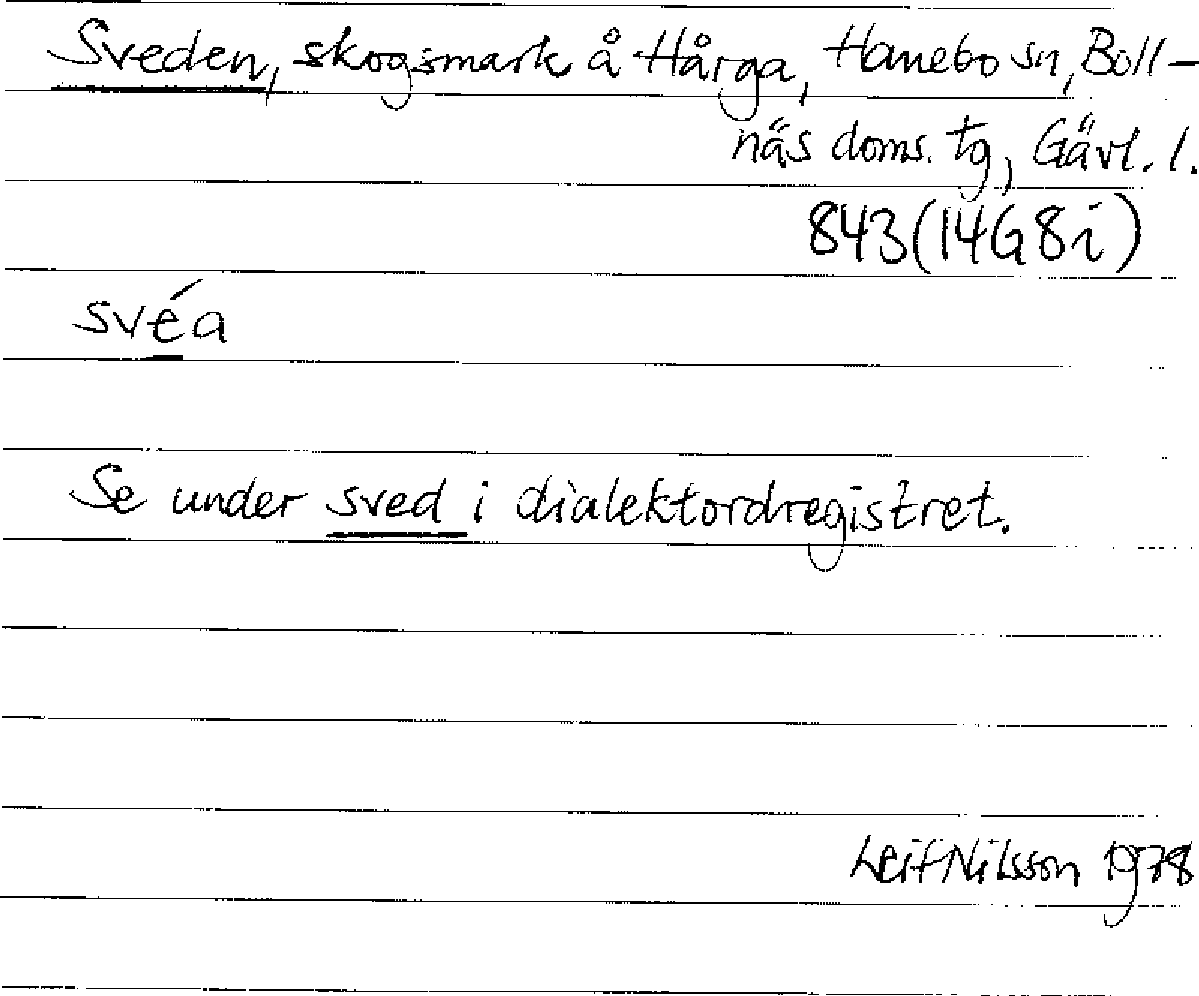 Sveden, skogsmark å Hårga, Hanebo sn, Boll-
näs doms. tg, Gävl. l.
843(14G8i)
svéa
Se under sved i dialektordregistret.
Leif Nilsson 1978